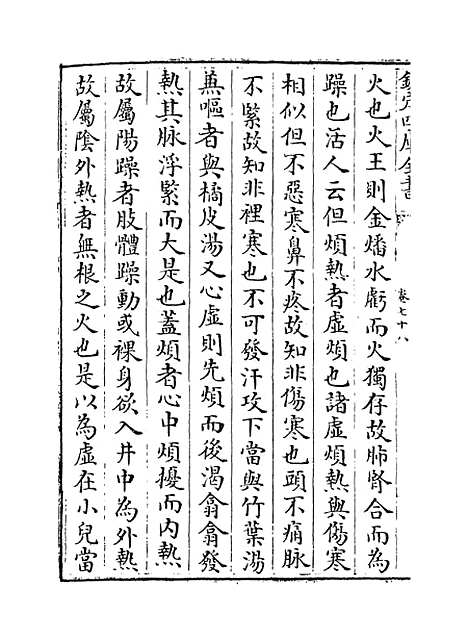 欽定四庫全書
卷七十八
火也火王則金燔水虧而火獨存故肺腎合而為
躁也活人云但煩熱者虛煩也諸虛煩熱與傷寒
相似但不惡寒鼻不疼故知非傷寒也頭不痛脉
不緊故知非裡寒也不可發汗攻下當與竹葉湯
兼嘔者與橘皮湯又心虛則先煩而後渴翕翕發
熱其脉浮緊而大是也蓋煩者心中煩擾而内熱
故屬陽躁者肢體躁動或裸身欲入井中為外熱
故屬陰外熱者無根之火也是以為虛在小兒當